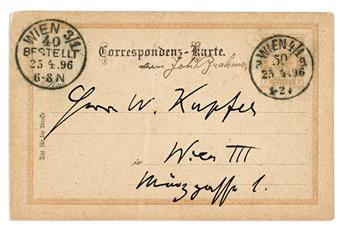 WIEN 3/1
40
BESTELLT
25.4.96
6-8N
Correspondenz-Karte.
Joh. Brahms
WIEN 4/1
50
25.4.96
Nur für die Adresse
Herrn W. Kupfer
in Wien III